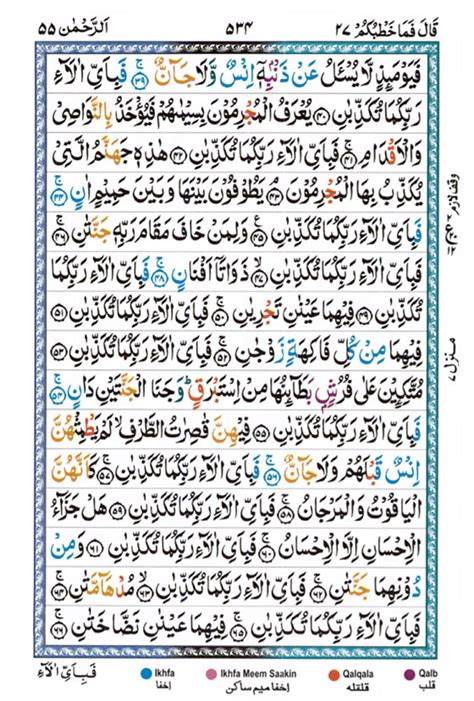 قَالَ فَمَا خَطْبُكُمْ ٢٧
٥٣٤
اَلرَّحْمٰن ٥٥
فَيَوْمَئِذٍ لَّا يُسْـَٔلُ عَنْ ذَنْۢبِهٖۤ اِنْسٌ وَّلَا جَآنٌّ ۚ‏﴿۳۹﴾‏ فَبِاَيِّ اٰلَآءِ
رَبِّكُمَا تُكَذِّبٰنِ ﴿۴۰﴾ يُعْرَفُ الْمُجْرِمُوْنَ بِسِيْمٰهُمْ فَيُؤْخَذُ بِالنَّوَاصِيْ
وَالْاَقْدَامِ ۚ﴿۴۱﴾ فَبِاَيِّ اٰلَآءِ رَبِّكُمَا تُكَذِّبٰنِ ﴿۴۲﴾ هٰذِهٖ جَهَنَّمُ الَّتِيْ
يُكَذِّبُ بِهَا الْمُجْرِمُوْنَ ۘ﴿۴۳﴾ يَطُوْفُوْنَ بَيْنَهَا وَبَيْنَ حَمِيْمٍ اٰنٍ ۚ﴿۴۴﴾
فَبِاَيِّ اٰلَآءِ رَبِّكُمَا تُكَذِّبٰنِ ﴿۴۵﴾ وَلِمَنْ خَافَ مَقَامَ رَبِّهٖ جَنَّتٰنِ ۚ﴿۴۶﴾
فَبِاَيِّ اٰلَآءِ رَبِّكُمَا تُكَذِّبٰنِ ۙ﴿۴۷﴾ ذَوَاتَاۤ اَفْنَانٍ ۚ﴿۴۸﴾ فَبِاَيِّ اٰلَآءِ رَبِّكُمَا
تُكَذِّبٰنِ ﴿۴۹﴾ فِيْهِمَا عَيْنٰنِ تَجْرِيٰنِ ۚ﴿۵۰﴾ فَبِاَيِّ اٰلَآءِ رَبِّكُمَا تُكَذِّبٰنِ ﴿۵۱﴾
فِيْهِمَا مِنْ كُلِّ فَاكِهَةٍ زَوْجٰنِ ۚ﴿۵۲﴾ فَبِاَيِّ اٰلَآءِ رَبِّكُمَا تُكَذِّبٰنِ ﴿۵۳﴾
مُتَّكِـِٕيْنَ عَلٰى فُرُشٍۢ بَطَآئِنُهَا مِنْ اِسْتَبْرَقٍ ؕ وَجَنَا الْجَنَّتَيْنِ دَانٍ ۚ﴿۵۴﴾
فَبِاَيِّ اٰلَآءِ رَبِّكُمَا تُكَذِّبٰنِ ﴿۵۵﴾ فِيْهِنَّ قٰصِرٰتُ الطَّرْفِ ۙ لَمْ يَطْمِثْهُنَّ
اِنْسٌ قَبْلَهُمْ وَلَا جَآنٌّ ۚ﴿۵۶﴾ فَبِاَيِّ اٰلَآءِ رَبِّكُمَا تُكَذِّبٰنِ ۚ﴿۵۷﴾ كَاَنَّهُنَّ
الْيَاقُوْتُ وَالْمَرْجَانُ ۚ﴿۵۸﴾ فَبِاَيِّ اٰلَآءِ رَبِّكُمَا تُكَذِّبٰنِ ﴿۵۹﴾ هَلْ جَزَآءُ
الْاِحْسَانِ اِلَّا الْاِحْسَانُ ۚ﴿۶۰﴾ فَبِاَيِّ اٰلَآءِ رَبِّكُمَا تُكَذِّبٰنِ ﴿۶۱﴾ وَمِنْ
دُوْنِهِمَا جَنَّتٰنِ ۚ﴿۶۲﴾ فَبِاَيِّ اٰلَآءِ رَبِّكُمَا تُكَذِّبٰنِ ۙ﴿۶۳﴾ مُدْهَآمَّتٰنِ ۚ﴿۶۴﴾
فَبِاَيِّ اٰلَآءِ رَبِّكُمَا تُكَذِّبٰنِ ۚ﴿۶۵﴾ فِيْهِمَا عَيْنٰنِ نَضَّاخَتٰنِ ۚ﴿۶۶﴾
وقف لازم
منزل ۷
Ikhfa اخفا
Ikhfa Meem Saakin اخفا میم ساکن
Qalqala قلقلہ
Qalb قلب
فَبِاَيِّ اٰلَآءِ